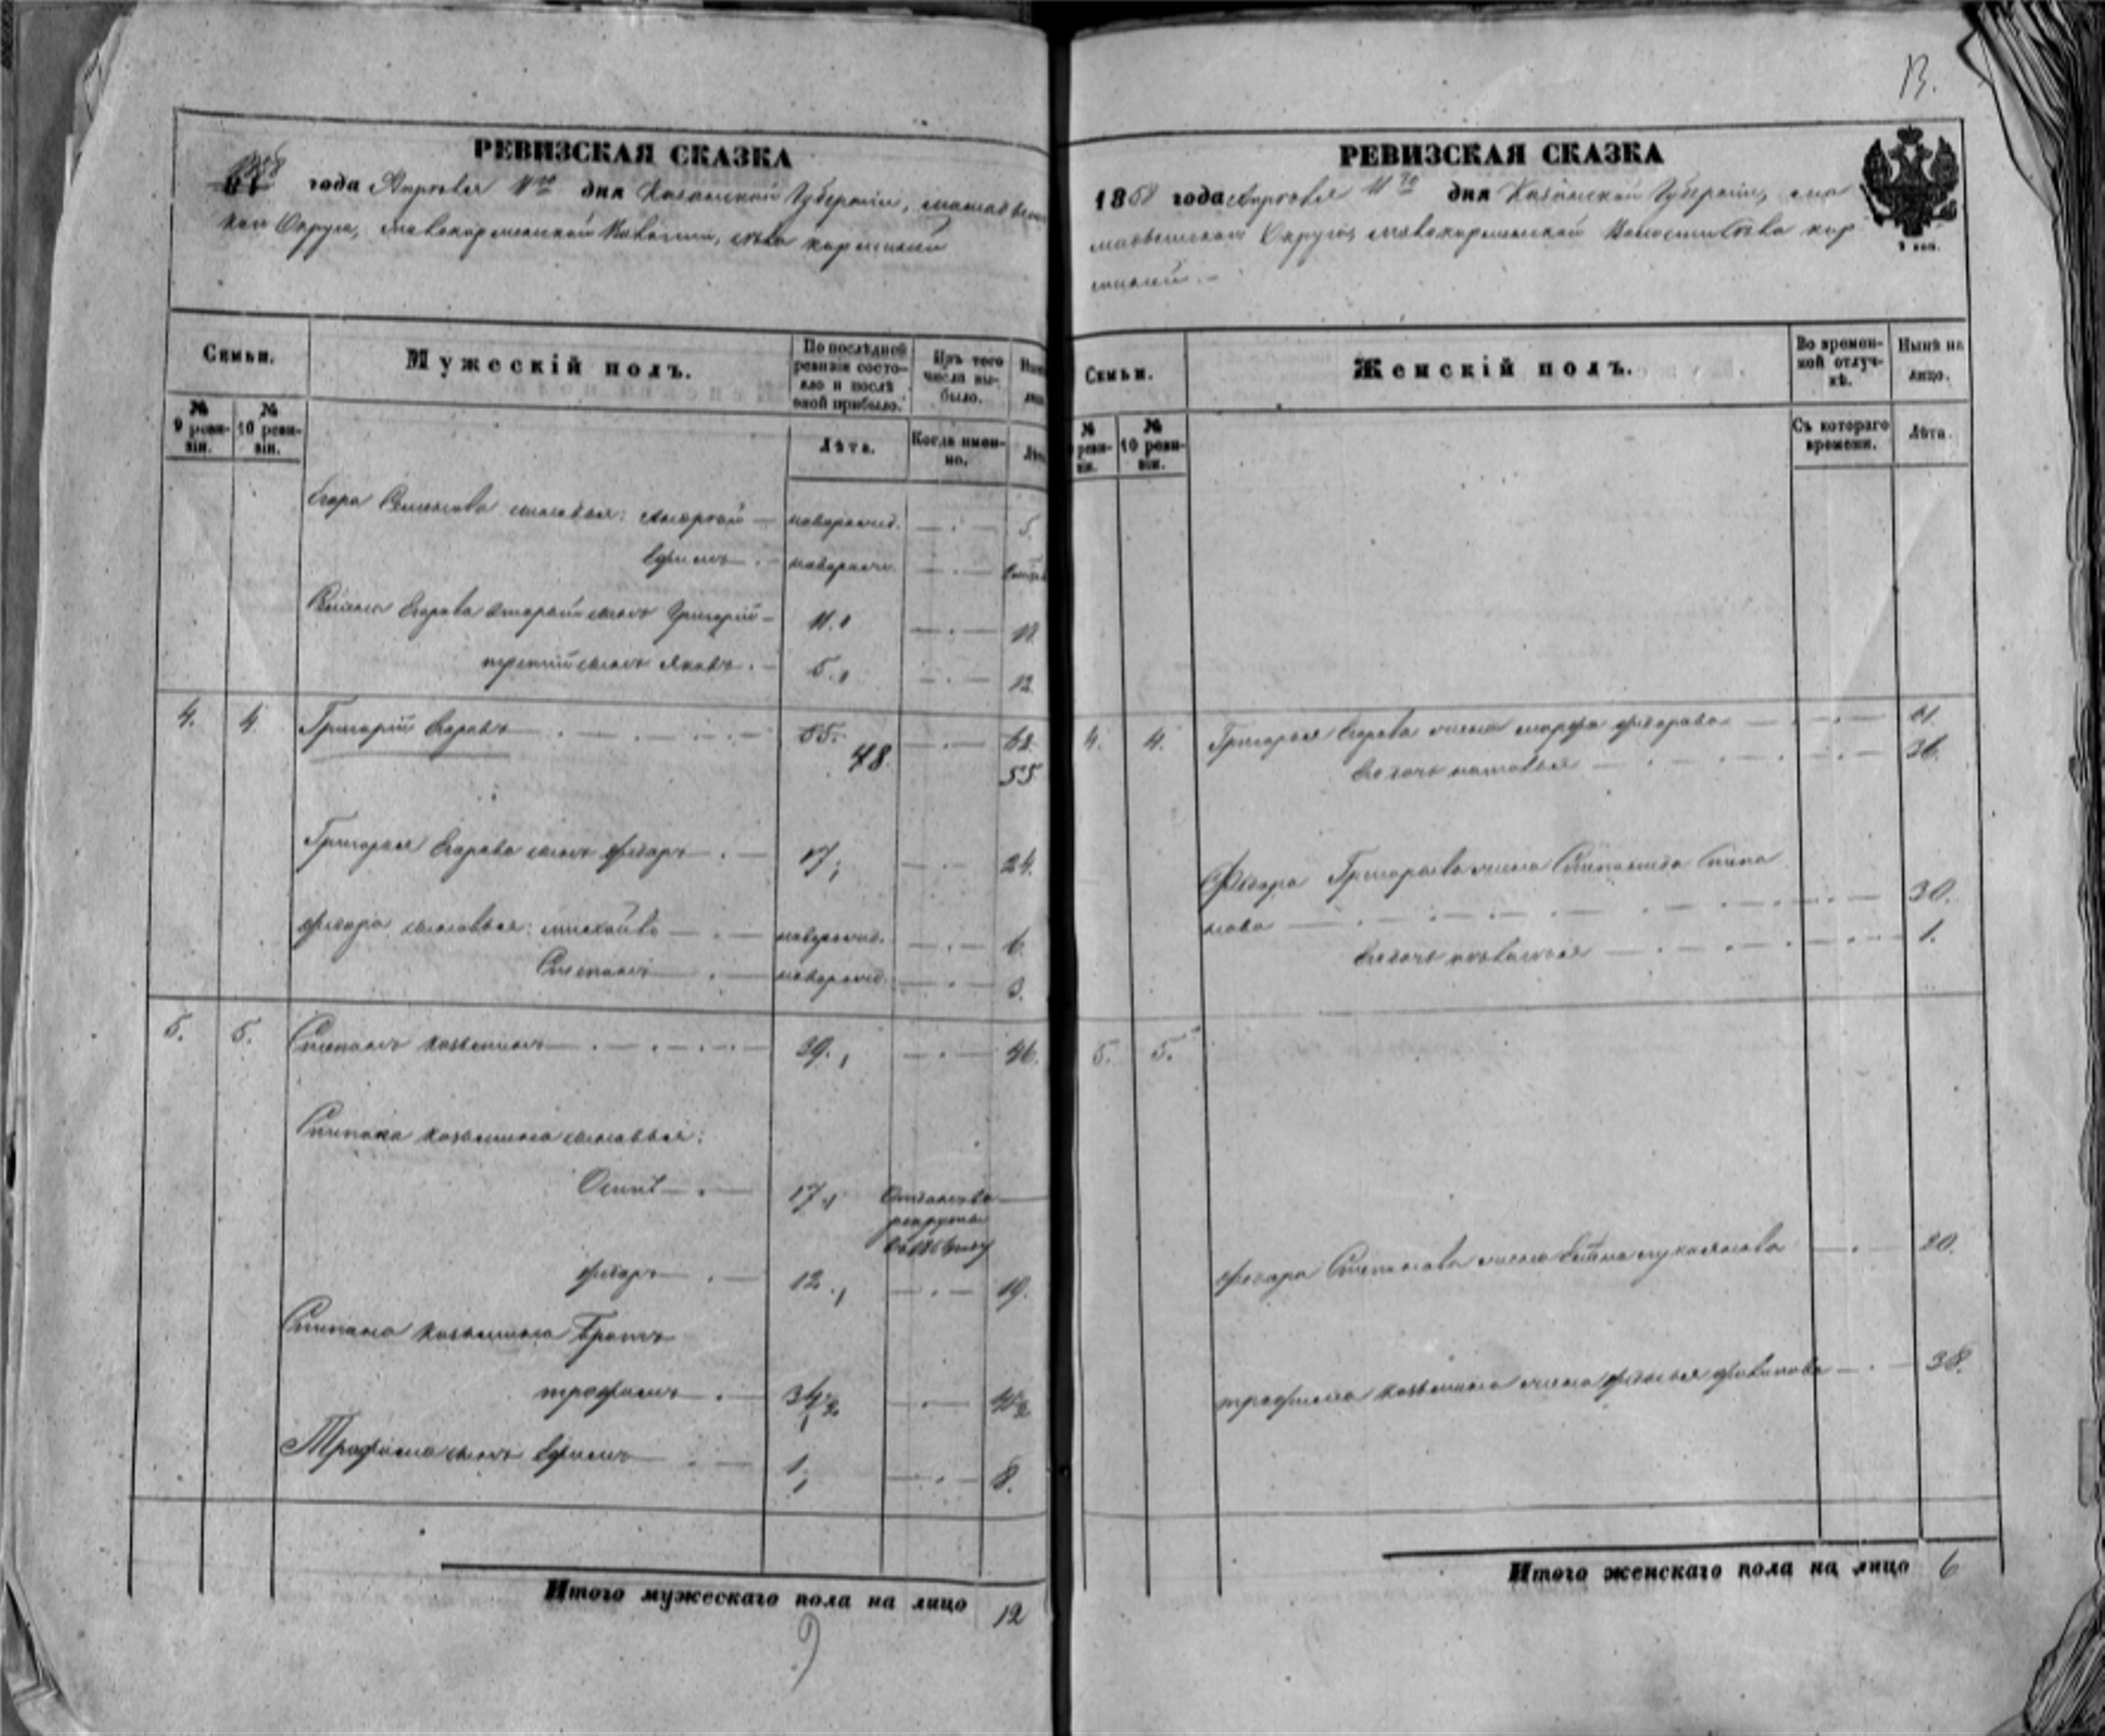 13.
РЕВИЗСКАЯ СКАЗКА
1858 года Апреля 11го дня Казанской Губерніи, мамадыш
кой Округа, Волости, села
Семьи.
Мужескій полъ.
По послѣдней ревизіи состояло и послѣ оной прибыло.
Изъ того числа выбыло.
№ 9 ревизіи.
№ 10 ревизіи.
Лѣта.
Когда именно.
Егора Семенова сыновья: Андрей новорожд. 5.
Ефимъ новорожд.
Егорова второй сынъ Григорій 11. 18.
третій сынъ Яковъ 5. 12.
4. 4. Григорій Егоровъ 55. 62.
48 55
Григорья Егорова сынъ Федоръ 17. 24.
Федора сыновья: михайло новорожд. 6.
Степанъ новорожд. 3.
5. 5. Степанъ Козьминъ 39. 46.
Степана Козьмина сыновья:
Осипъ 17. Отданъ въ
рекруты
въ году
Федоръ 12. 19.
Степана Козьмина Братъ
трофимъ 34½ 41½
Трофима сынъ Ефимъ 1. 8.
Итого мужескаго пола на лицо 12
РЕВИЗСКАЯ СКАЗКА
1858 года Апреля 11го дня Казанской Губерніи, ма
мадышской Округи, Волости Села
Семьи.
Женскій полъ.
Во временной отлучкѣ.
Нынѣ на лицо.
№ ревизіи.
№ 10 ревизіи.
Съ котораго времени.
Лѣта.
4. 4. Григорья Егорова жена марфа федорова 61.
Ево дочь наталья 36.
Федора Григорьева жена Степанида Степа
нова 30.
Ево дочь 1.
5. 5.
федора Степанова жена 20.
трофима Козьмина жена 38.
Итого женскаго пола на лицо 6